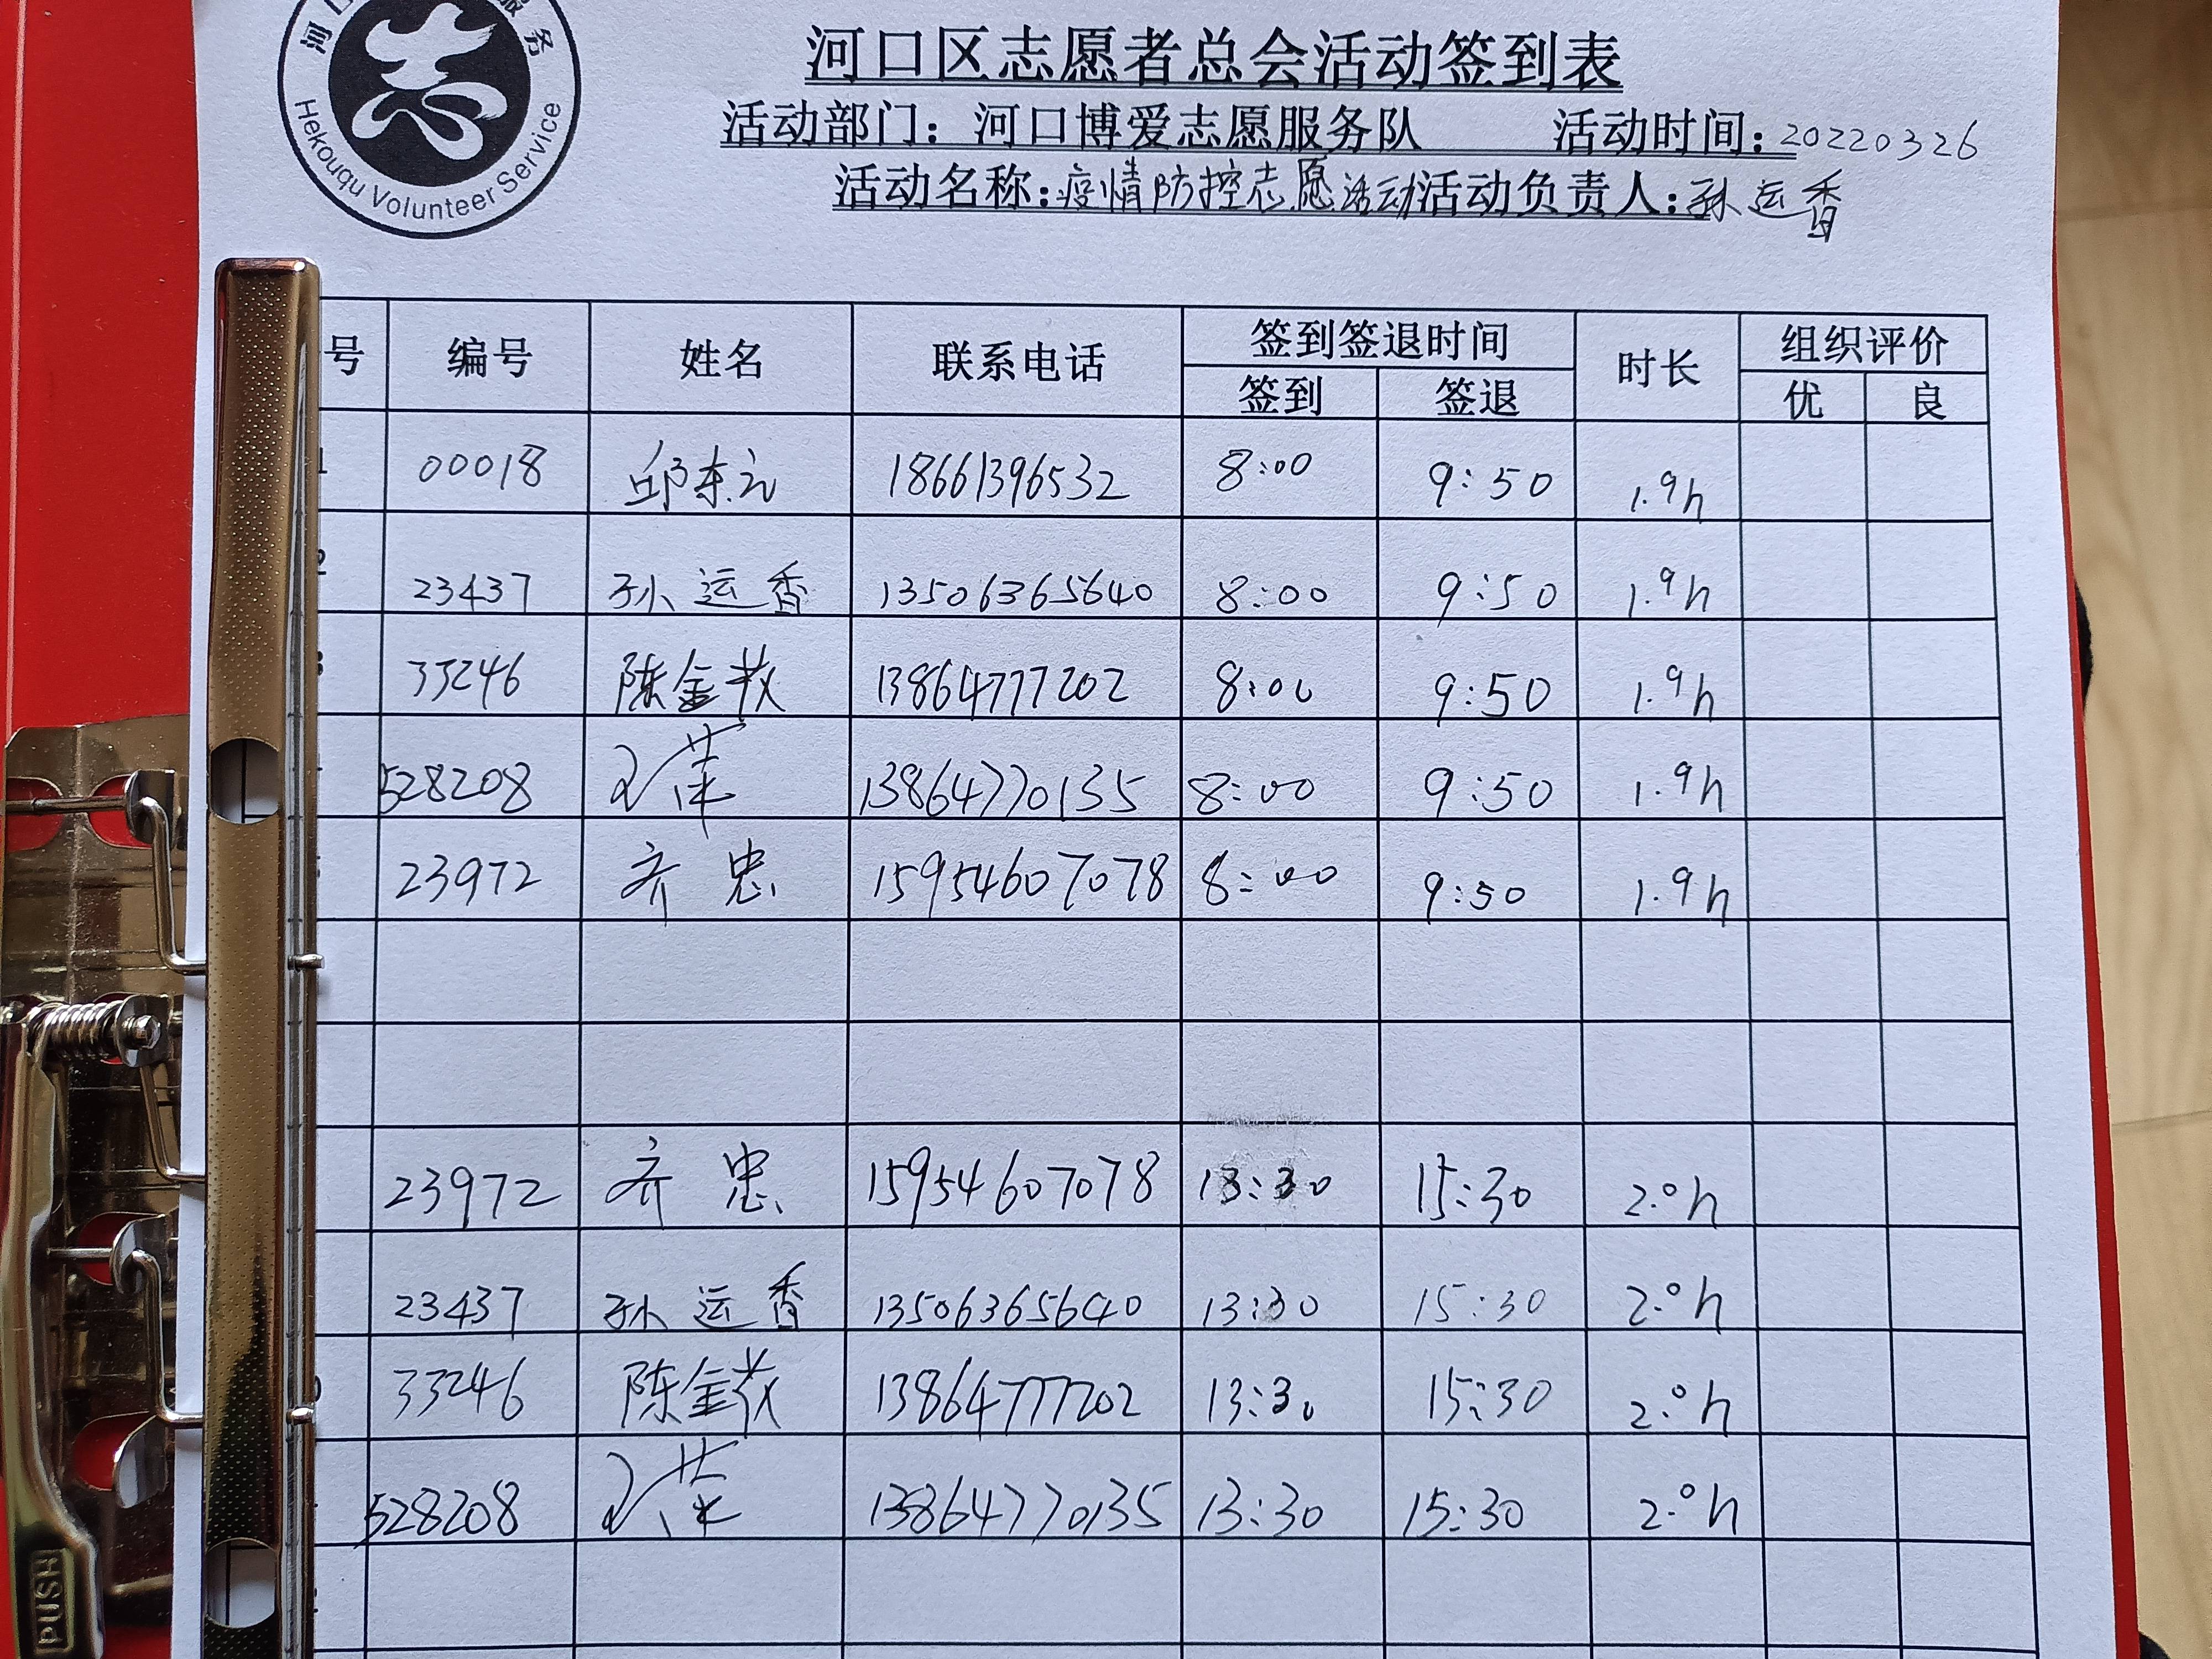 河口 服务
Hekouqu Volunteer Service
河口区志愿者总会活动签到表
活动部门：河口博爱志愿服务队 活动时间：20220326
活动名称：疫情防控志愿活动 活动负责人：孙运香
号 编号 姓名 联系电话 签到签退时间 时长 组织评价
签到 签退 优 良
1 00018 邱东元 18661396532 8:00 9:50 1.9h
2 23437 孙运香 13506365640 8:00 9:50 1.9h
3 33246 陈金 13864777202 8:00 9:50 1.9h
528208 王荣 13864770135 8:00 9:50 1.9h
23972 齐忠 15954607078 8:00 9:50 1.9h
23972 齐忠 15954607078 13:30 15:30 2.0h
23437 孙运香 13506365640 13:30 15:30 2.0h
33246 陈金 13864777202 13:30 15:30 2.0h
528208 王荣 13864770135 13:30 15:30 2.0h
PUSH